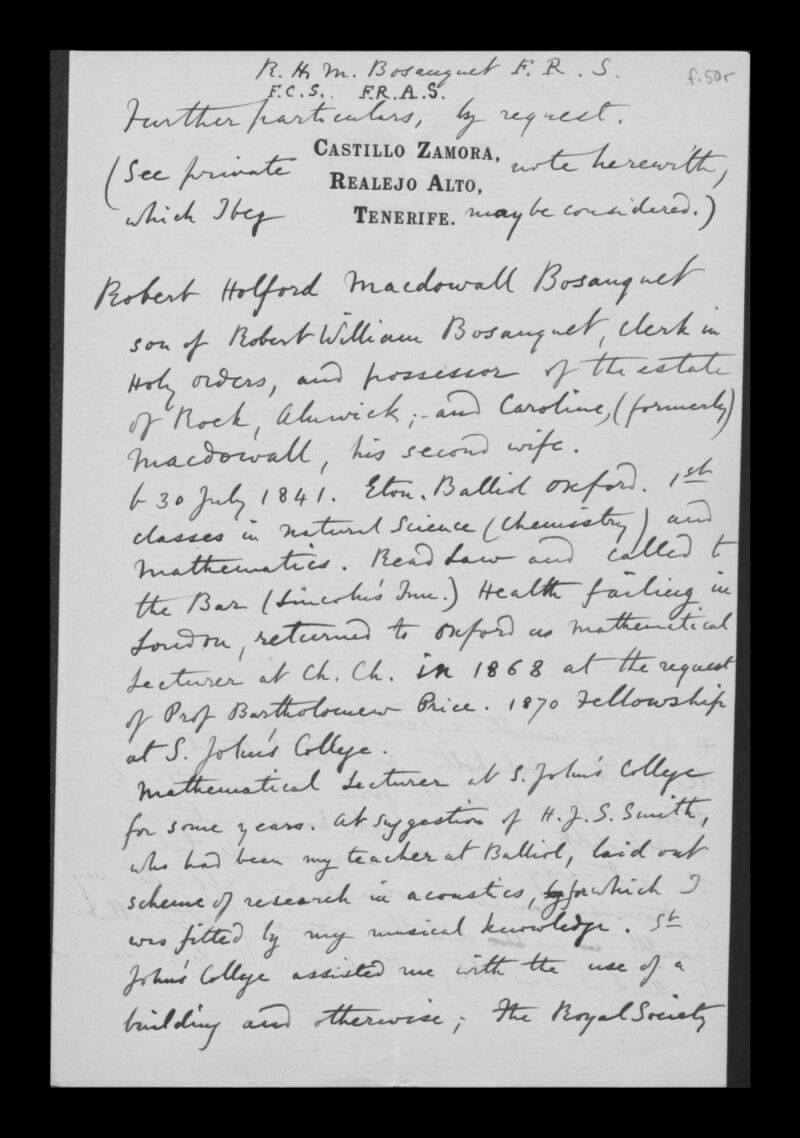 R. H. M. Bosanquet F. R. S.
f.50r
F.C.S. F.R.A.S.
Further particulars, by request.
CASTILLO ZAMORA,
(See private note herewith,
REALEJO ALTO,
which I beg may be considered.)
TENERIFE.
Robert Holford Macdowall Bosanquet
son of Robert William Bosanquet, Clerk in
Holy orders, and possessor of the estate
of Rock, Alnwick; - and Caroline, (formerly)
Macdowall, his second wife.
b 30 July 1841. Eton. Balliol Oxford. 1st
classes in Natural Science (Chemistry) and
Mathematics. Read Law and called to
the Bar (Lincoln's Inn.) Health failing in
London, returned to Oxford as Mathematical
Lecturer at Ch. Ch. in 1868 at the request
of Prof Bartholomew Price. 1870 Fellowship
at S. John's College.
Mathematical Lecturer at S. John's College
for some years. At suggestion of H. J. S. Smith,
who had been my teacher at Balliol, laid out
scheme of research in acoustics, by for which I
was fitted by my musical knowledge. St
John's College assisted me with the use of a
building and otherwise; the Royal Society